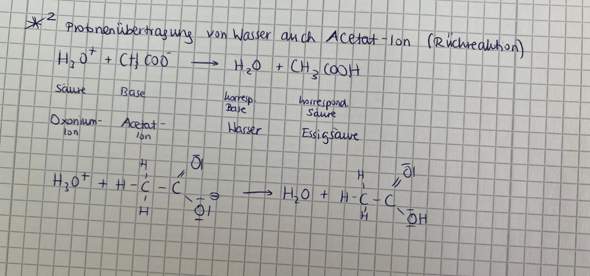 *² Protonenübertragung von Wasser auch Acetat-Ion (Rückreaktion)
H₃O⁺ + CH₃COO⁻ → H₂O + CH₃COOH
Säure Base korresp. Base korrespond. Säure
Oxonium-Ion Acetat-Ion Wasser Essigsäure
H O
H₃O⁺ + H-C-C → H₂O + H-C-C
H O⊖ H OH